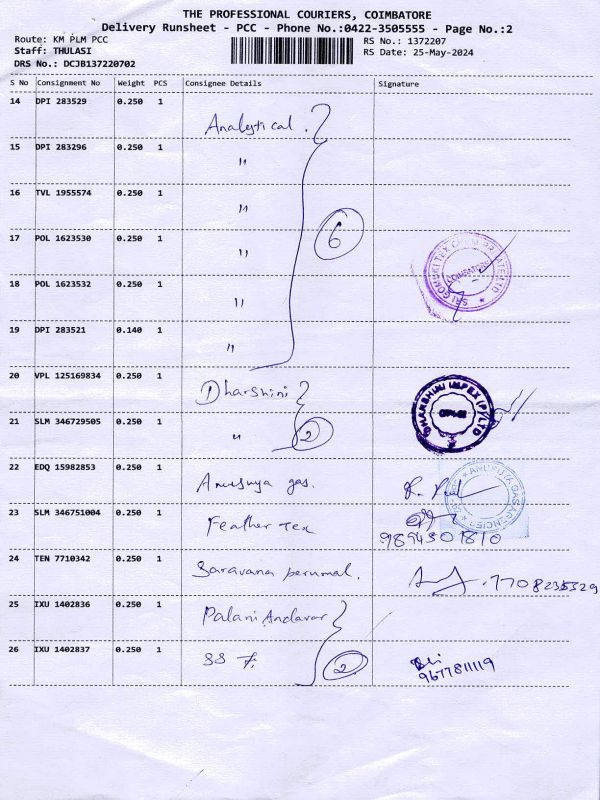 THE PROFESSIONAL COURIERS, COIMBATORE
Delivery Runsheet - PCC - Phone No.:0422-3505555 - Page No.:2
Route: KM PLM PCC RS No.: 1372207
Staff: THULASI RS Date: 25-May-2024
DRS No.: DCJB137220702
S No Consignment No Weight PCS Consignee Details Signature
14 DPI 283529 0.250 1 Analytical.
15 DPI 283296 0.250 1 "
16 TVL 1955574 0.250 1 "
17 POL 1623530 0.250 1 " 6
SRI GOMUKI TEX PRIVATE LTD COIMBATORE
18 POL 1623532 0.250 1 "
19 DPI 283521 0.140 1 "
20 VPL 125169834 0.250 1 Dharshini
DHARSHINI IMPEX (P) LTD
21 SLM 346729505 0.250 1 " 2
22 EDQ 15982853 0.250 1 Anusuya gas.
ANUSUYA GAS AGENCIES
23 SLM 346751004 0.250 1 Feather Tex
9894301810
24 TEN 7710342 0.250 1 Saravana perumal. .7708235329
25 IXU 1402836 0.250 1 Palani Andavar
26 IXU 1402837 0.250 1 SS 2
9677811119